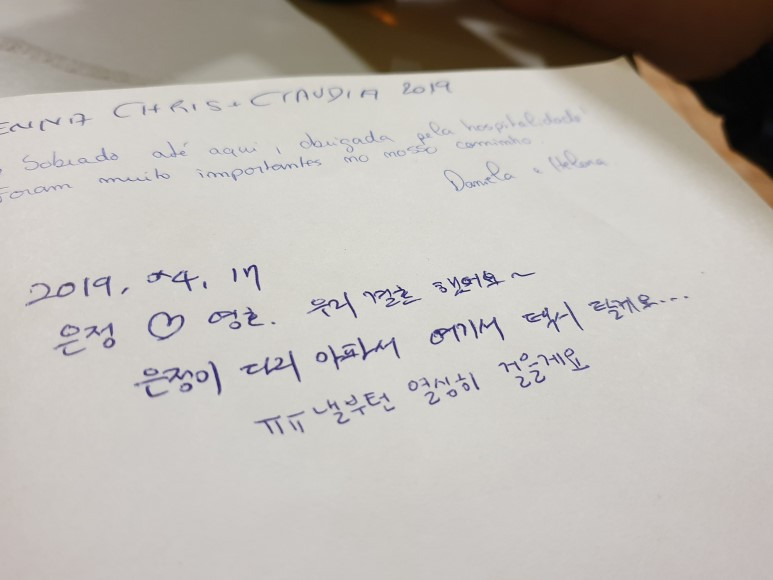 CHRIS + CLAUDIA 2019
Sobrado até aqui, obrigada pela hospitalidade!
Foram muito importantes no nosso caminho.
Daniela e Helena
2019. 04. 17
은정 ♡ 영호. 우리 결혼 했어요~
은정이 다리 아파서 여기서 택시 탈게요...
ㅠㅠ 낼부턴 열심히 걸을게요